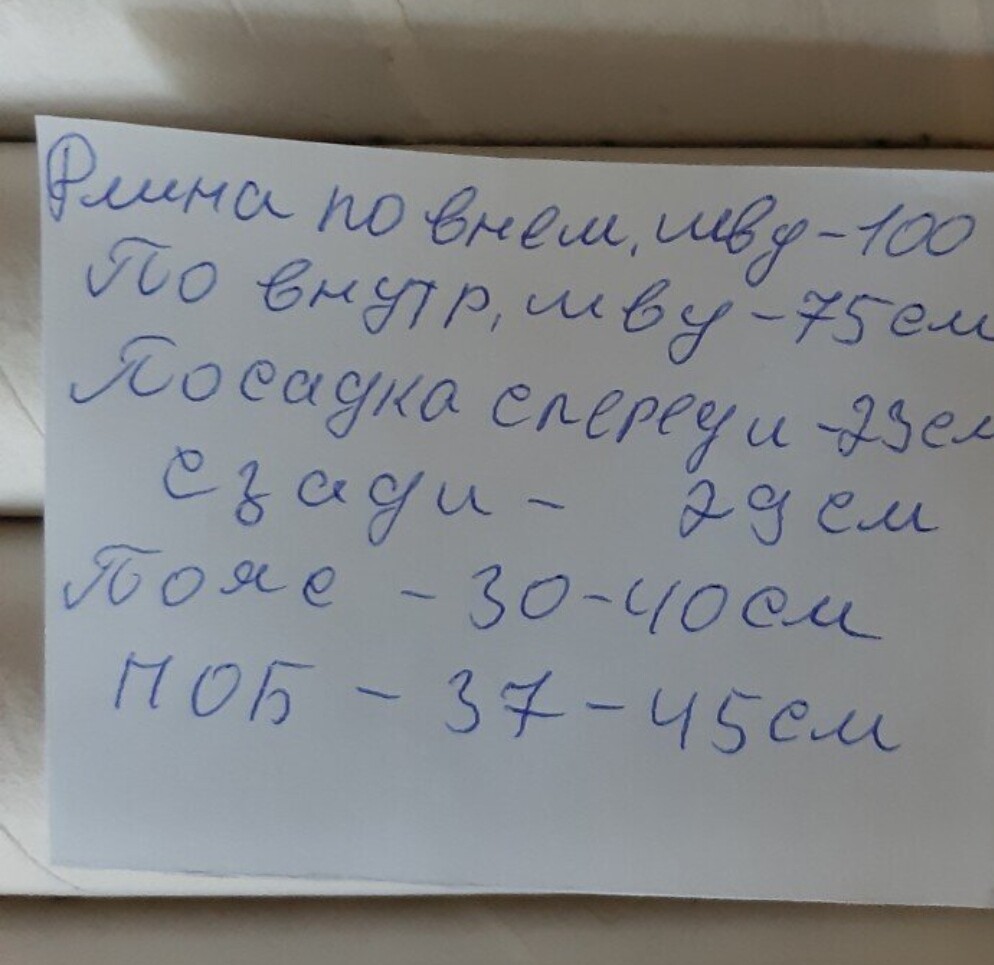 Длина по внеш. шву-100
По внутр, шву-75см
Посадка спереди-23см
сзади - 29см
Пояс - 30-40см
ПОБ - 37-45см